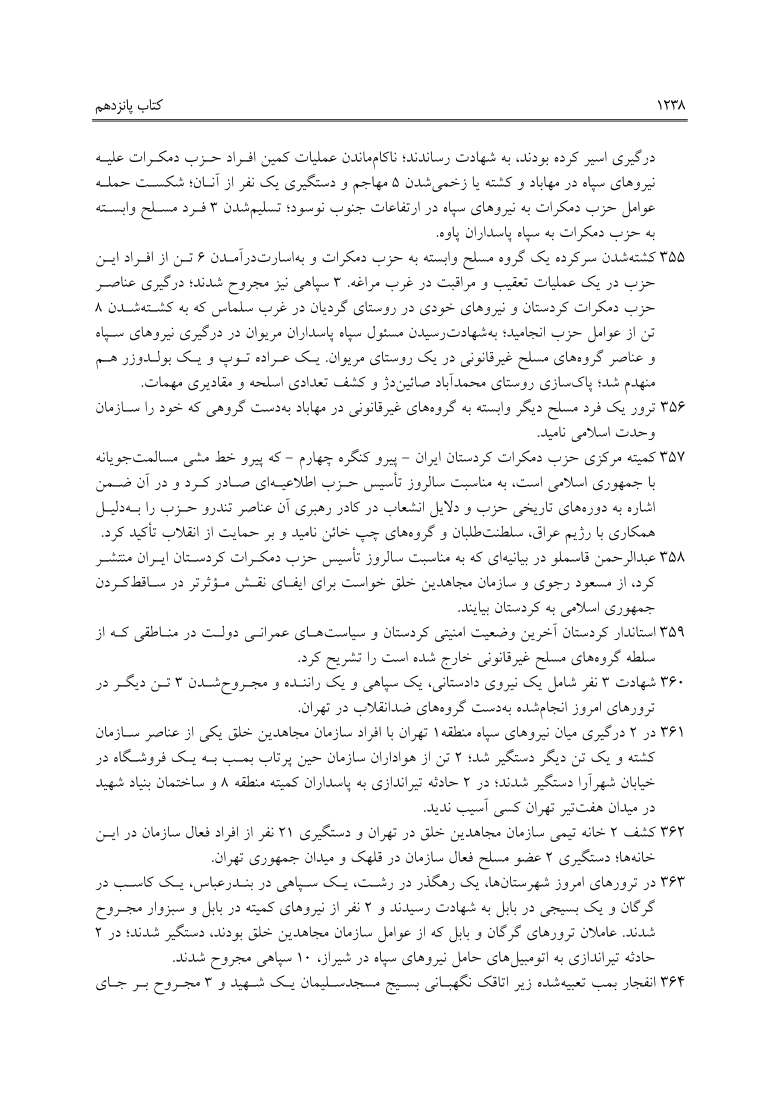 ۱۲۳۸ کتاب پانزدهم
درگیری اسیر کرده بودند، به شهادت رساندند؛ ناکام‌ماندن عملیات کمین افراد حزب دمکرات علیه
نیروهای سپاه در مهاباد و کشته یا زخمی‌شدن ۵ مهاجم و دستگیری یک نفر از آنان؛ شکست حمله
عوامل حزب دمکرات به نیروهای سپاه در ارتفاعات جنوب نوسود؛ تسلیم‌شدن ۳ فرد مسلح وابسته
به حزب دمکرات به سپاه پاسداران پاوه.
۳۵۵ کشته‌شدن سرکرده یک گروه مسلح وابسته به حزب دمکرات و به‌اسارت‌درآمدن ۶ تن از افراد این
حزب در یک عملیات تعقیب و مراقبت در غرب مراغه. ۳ سپاهی نیز مجروح شدند؛ درگیری عناصر
حزب دمکرات کردستان و نیروهای خودی در روستای گردیان در غرب سلماس که به کشته‌شدن ۸
تن از عوامل حزب انجامید؛ به‌شهادت‌رسیدن مسئول سپاه پاسداران مریوان در درگیری نیروهای سپاه
و عناصر گروه‌های مسلح غیرقانونی در یک روستای مریوان. یک عراده توپ و یک بولدوزر هم
منهدم شد؛ پاک‌سازی روستای محمدآباد صائین‌دژ و کشف تعدادی اسلحه و مقادیری مهمات.
۳۵۶ ترور یک فرد مسلح دیگر وابسته به گروه‌های غیرقانونی در مهاباد به‌دست گروهی که خود را سازمان
وحدت اسلامی نامید.
۳۵۷ کمیته مرکزی حزب دمکرات کردستان ایران – پیرو کنگره چهارم – که پیرو خط مشی مسالمت‌جویانه
با جمهوری اسلامی است، به مناسبت سالروز تأسیس حزب اطلاعیه‌ای صادر کرد و در آن ضمن
اشاره به دوره‌های تاریخی حزب و دلایل انشعاب در کادر رهبری آن عناصر تندرو حزب را به‌دلیل
همکاری با رژیم عراق، سلطنت‌طلبان و گروه‌های چپ خائن نامید و بر حمایت از انقلاب تأکید کرد.
۳۵۸ عبدالرحمن قاسملو در بیانیه‌ای که به مناسبت سالروز تأسیس حزب دمکرات کردستان ایران منتشر
کرد، از مسعود رجوی و سازمان مجاهدین خلق خواست برای ایفای نقش مؤثرتر در ساقط‌کردن
جمهوری اسلامی به کردستان بیایند.
۳۵۹ استاندار کردستان آخرین وضعیت امنیتی کردستان و سیاست‌های عمرانی دولت در مناطقی که از
سلطه گروه‌های مسلح غیرقانونی خارج شده است را تشریح کرد.
۳۶۰ شهادت ۳ نفر شامل یک نیروی دادستانی، یک سپاهی و یک راننده و مجروح‌شدن ۳ تن دیگر در
ترورهای امروز انجام‌شده به‌دست گروه‌های ضدانقلاب در تهران.
۳۶۱ در ۲ درگیری میان نیروهای سپاه منطقه۱ تهران با افراد سازمان مجاهدین خلق یکی از عناصر سازمان
کشته و یک تن دیگر دستگیر شد؛ ۲ تن از هواداران سازمان حین پرتاب بمب به یک فروشگاه در
خیابان شهرآرا دستگیر شدند؛ در ۲ حادثه تیراندازی به پاسداران کمیته منطقه ۸ و ساختمان بنیاد شهید
در میدان هفت‌تیر تهران کسی آسیب ندید.
۳۶۲ کشف ۲ خانه تیمی سازمان مجاهدین خلق در تهران و دستگیری ۲۱ نفر از افراد فعال سازمان در این
خانه‌ها؛ دستگیری ۲ عضو مسلح فعال سازمان در قلهک و میدان جمهوری تهران.
۳۶۳ در ترورهای امروز شهرستان‌ها، یک رهگذر در رشت، یک سپاهی در بندرعباس، یک کاسب در
گرگان و یک بسیجی در بابل به شهادت رسیدند و ۲ نفر از نیروهای کمیته در بابل و سبزوار مجروح
شدند. عاملان ترورهای گرگان و بابل که از عوامل سازمان مجاهدین خلق بودند، دستگیر شدند؛ در ۲
حادثه تیراندازی به اتومبیل‌های حامل نیروهای سپاه در شیراز، ۱۰ سپاهی مجروح شدند.
۳۶۴ انفجار بمب تعبیه‌شده زیر اتاقک نگهبانی بسیج مسجدسلیمان یک شهید و ۳ مجروح بر جای